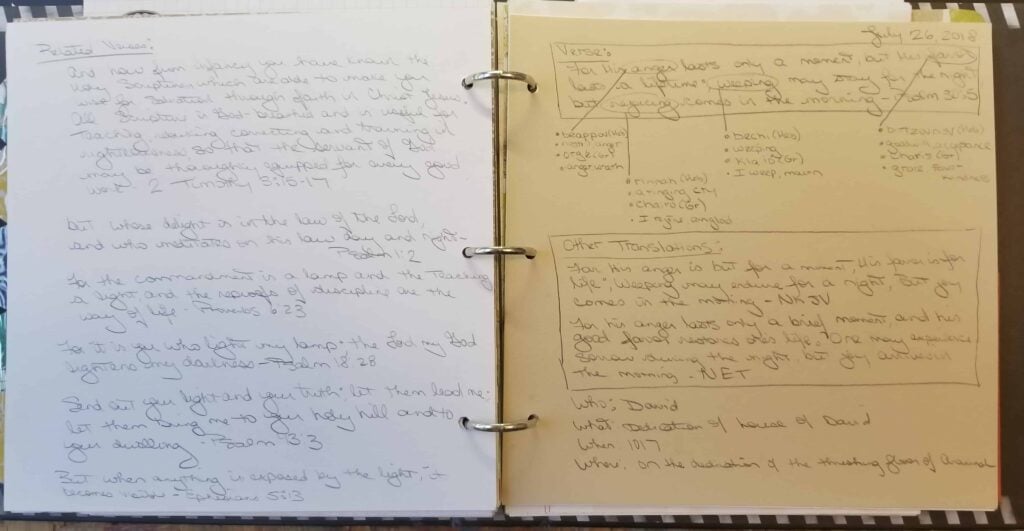 Related Verses:
And how from infancy you have known the
Holy Scriptures which are able to make you
wise for Salvation through faith in Christ Jesus.
All Scripture is God-breathed and is useful for
Teaching, rebuking correcting and training in
righteousness so that the servant of God
may be thoroughly equipped for every good
work. 2 Timothy 3:15-17
but whose delight is in the law of the Lord,
and who meditates on his law day and night-
Psalm 1:2
For the commandment is a lamp and the Teaching
a light and the reproofs of discipline are the
way of life - Proverbs 6:23
For it is you who light my lamp: the Lord my God
lightens my darkness - Psalm 18:28
Send out your light and your truth: let them lead me:
let them bring me to your holy hill and to
your dwelling - Psalm 43:3
But when anything is exposed by the light, it
becomes visible - Ephesians 5:13
July 26, 2018
Verse:
For His anger lasts only a moment, but His favor
lasts a lifetime; weeping may stay for the night
but rejoicing comes in the morning - Psalm 30:5
• beappov (Heb)
• anger
• orgē (Gr)
• anger wrath
• rinnah (Heb)
• a ringing cry
• chairō (Gr)
• I rejoice am glad
• bechi (Heb)
• weeping
• klaiō (Gr)
• I weep, mourn
• (Heb)
• goodwill acceptance
• charis (Gr)
• grace favor
kindness
Other Translations:
For His anger is but for a moment, His favor is for
life; Weeping may endure for a night, But joy
comes in the morning - NKJV
For his anger lasts only a brief moment, and his
good favor restores one's life. One may experience
sorrow during the night, but joy arrives in
the morning - NET
Who: David
What: Dedication of house of David
When: 1017
Where: On the dedication of the threshing floor of